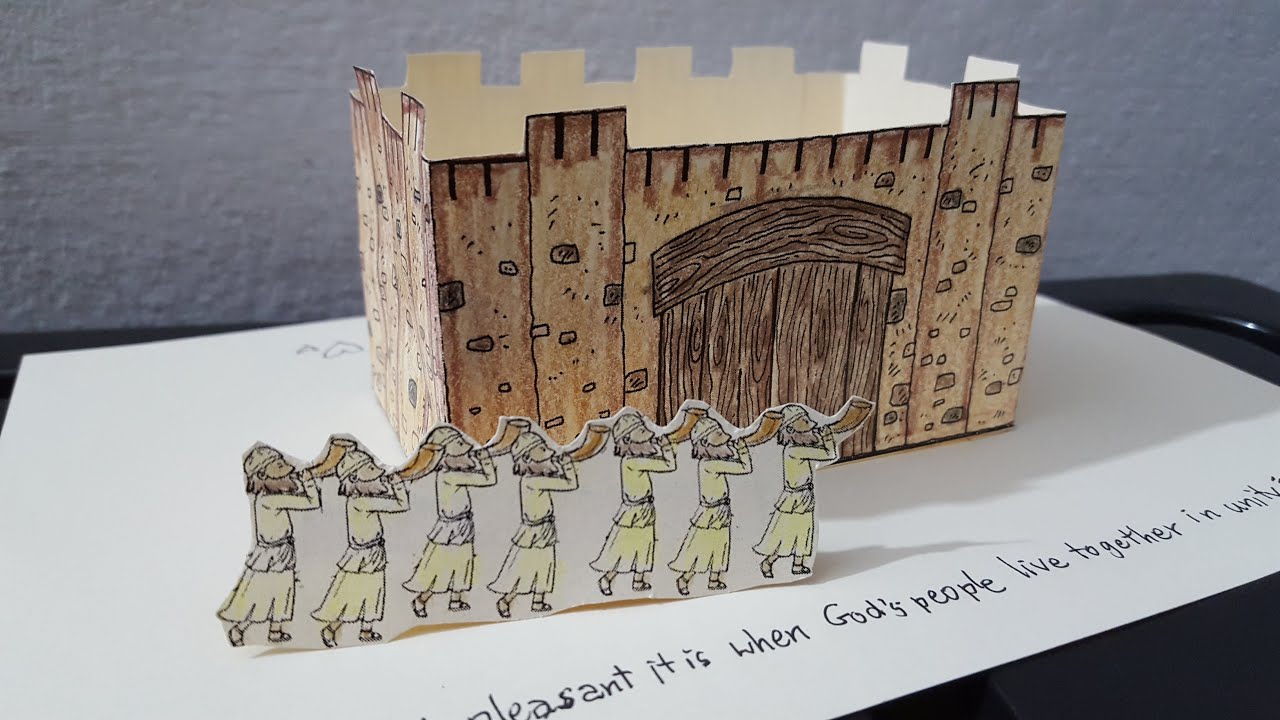 pleasant it is when God's people live together in unity